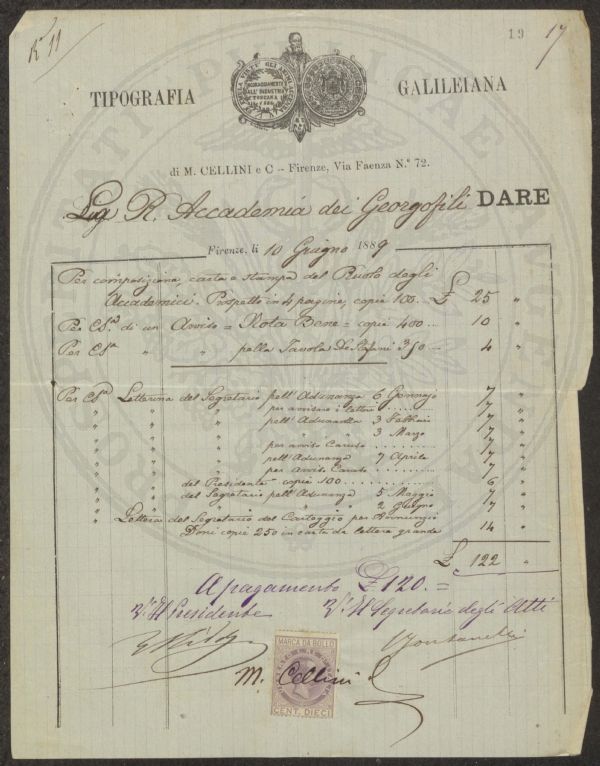 19 17
TIPOGRAFIA GALILEIANA
INCORAGGIAMENTO
ALL'INDUSTRIA
TOSCANA
di M. CELLINI e C – Firenze, Via Faenza N.º 72.
R. Accademia dei Georgofili DARE
Firenze, li 10 Giugno 1889
Per composizione, carta e stampa del Ruolo degli
Accademici. Prospetto in 4 pagine, copie 100. £ 25 "
Per Csª di un Avviso = Nota Bene = copie 400 10 "
Per Csª " " pella Tavola De Stefani 350 4 "
Per Csª Letterina del Segretario pell'Adunanza 6 Gennajo 7 "
" " " per avvisare i lettori 7 "
" " " pell'Adunanza 3 Febbraio 7 "
" " " " 3 Marzo 7 "
" " " per avviso Caruso 7 "
" " " pell'Adunanza 7 Aprile 7 "
" " " per avviso Caruso 7 "
" " del Presidente copie 100 6 "
" " del Segretario pell'Adunanza 5 Maggio 7 "
" " " " " 2 Giugno 7 "
" Lettera del Segretario del Carteggio per Annunzio
Doni copie 250 in carta da lettera grande 14 "
£ 122 "
A pagamento £ 120. =
Il Presidente Il Segretario degli Atti
MARCA DA BOLLO
M. Cellini
CENT. DIECI